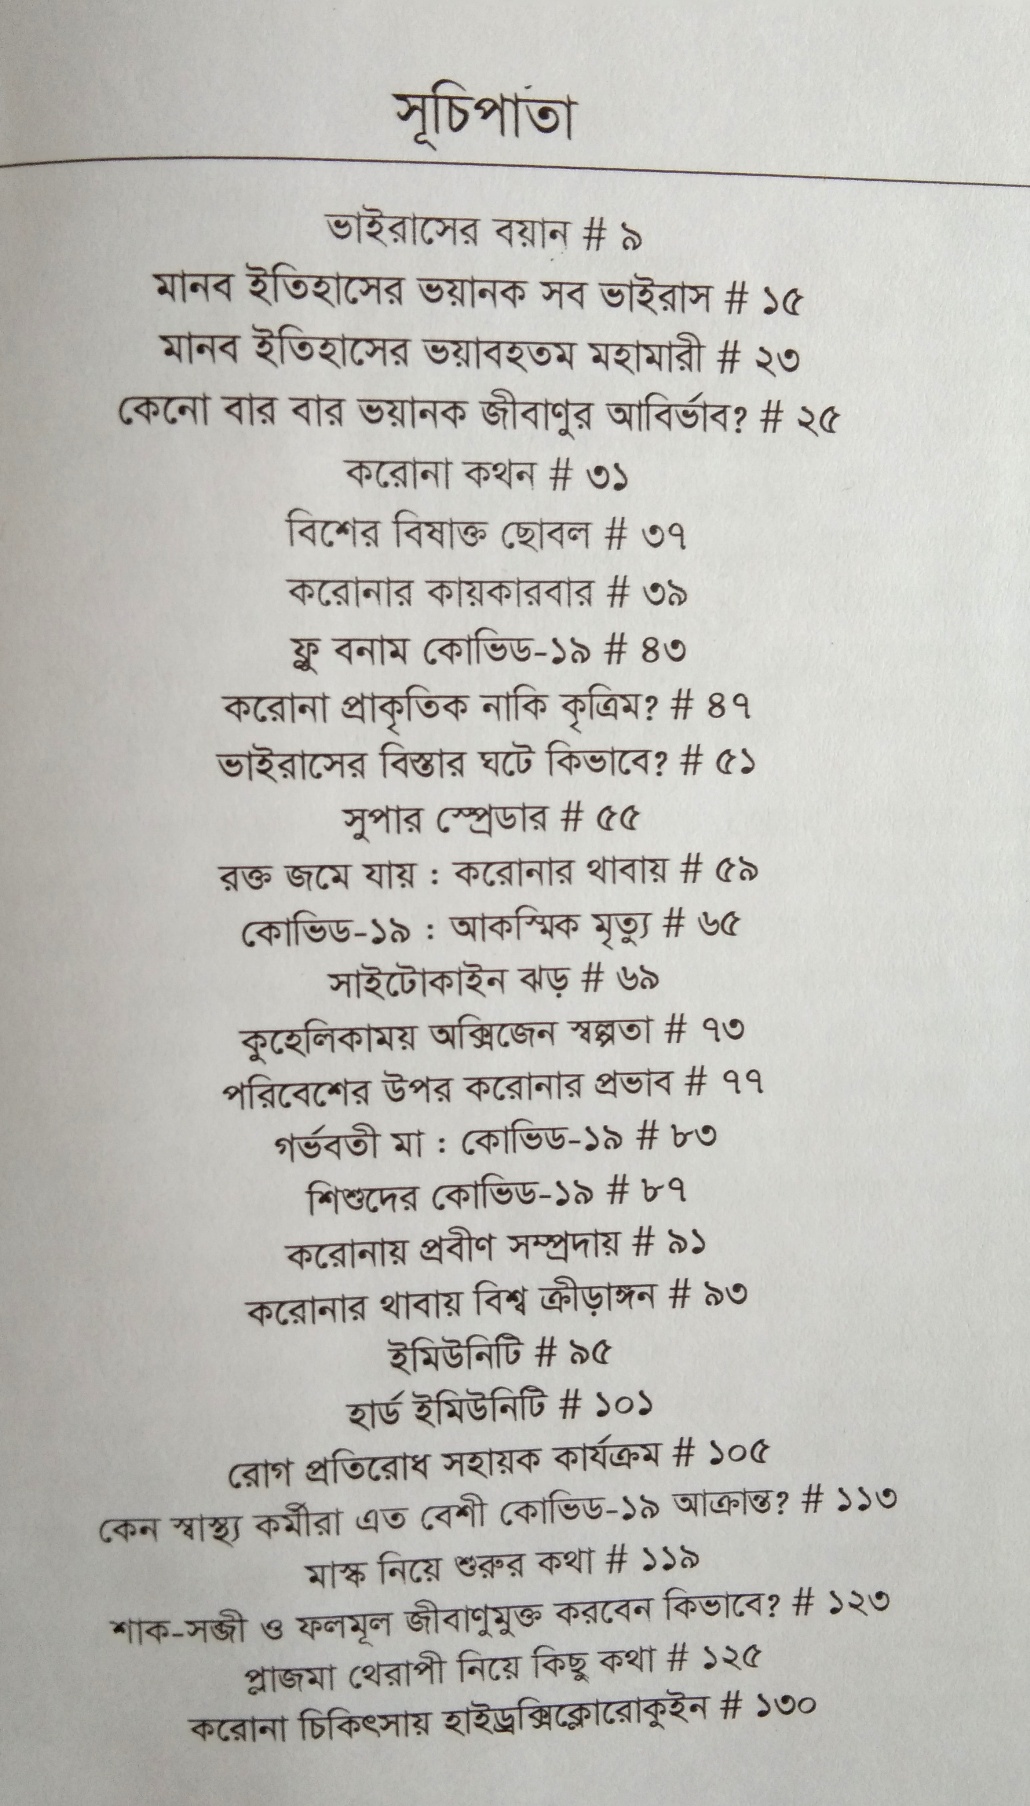 সূচিপাতা
ভাইরাসের বয়ান # ৯
মানব ইতিহাসের ভয়ানক সব ভাইরাস # ১৫
মানব ইতিহাসের ভয়াবহতম মহামারী # ২৩
কেনো বার বার ভয়ানক জীবাণুর আবির্ভাব? # ২৫
করোনা কথন # ৩১
বিশের বিষাক্ত ছোবল # ৩৭
করোনার কায়কারবার # ৩৯
ফ্লু বনাম কোভিড-১৯ # ৪৩
করোনা প্রাকৃতিক নাকি কৃত্রিম? # ৪৭
ভাইরাসের বিস্তার ঘটে কিভাবে? # ৫১
সুপার স্প্রেডার # ৫৫
রক্ত জমে যায় : করোনার থাবায় # ৫৯
কোভিড-১৯ : আকস্মিক মৃত্যু # ৬৫
সাইটোকাইন ঝড় # ৬৯
কুহেলিকাময় অক্সিজেন স্বল্পতা # ৭৩
পরিবেশের উপর করোনার প্রভাব # ৭৭
গর্ভবতী মা : কোভিড-১৯ # ৮৩
শিশুদের কোভিড-১৯ # ৮৭
করোনায় প্রবীণ সম্প্রদায় # ৯১
করোনার থাবায় বিশ্ব ক্রীড়াঙ্গন # ৯৩
ইমিউনিটি # ৯৫
হার্ড ইমিউনিটি # ১০১
রোগ প্রতিরোধ সহায়ক কার্যক্রম # ১০৫
কেন স্বাস্থ্য কর্মীরা এত বেশী কোভিড-১৯ আক্রান্ত? # ১১৩
মাস্ক নিয়ে শুরুর কথা # ১১৯
শাক-সব্জী ও ফলমূল জীবাণুমুক্ত করবেন কিভাবে? # ১২৩
প্লাজমা থেরাপী নিয়ে কিছু কথা # ১২৫
করোনা চিকিৎসায় হাইড্রক্সিক্লোরোকুইন # ১৩০